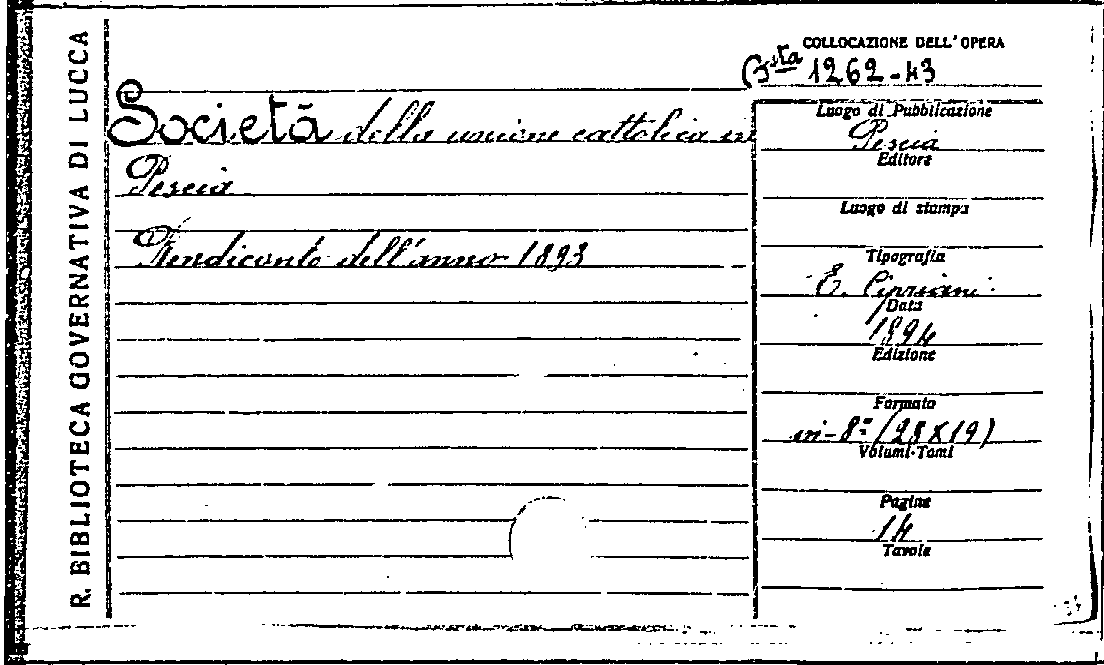 R. BIBLIOTECA GOVERNATIVA DI LUCCA
COLLOCAZIONE DELL'OPERA
Bsta 1262-43
Società della unione cattolica in
Pescia
Rendiconto dell'anno 1893
Luogo di Pubblicazione
Pescia
Editore
Luogo di stampa
Tipografia
E. Cipriani
Data
1894
Edizione
Formato
in-8º (28X19)
Volumi-Tomi
Pagine
14
Tavole